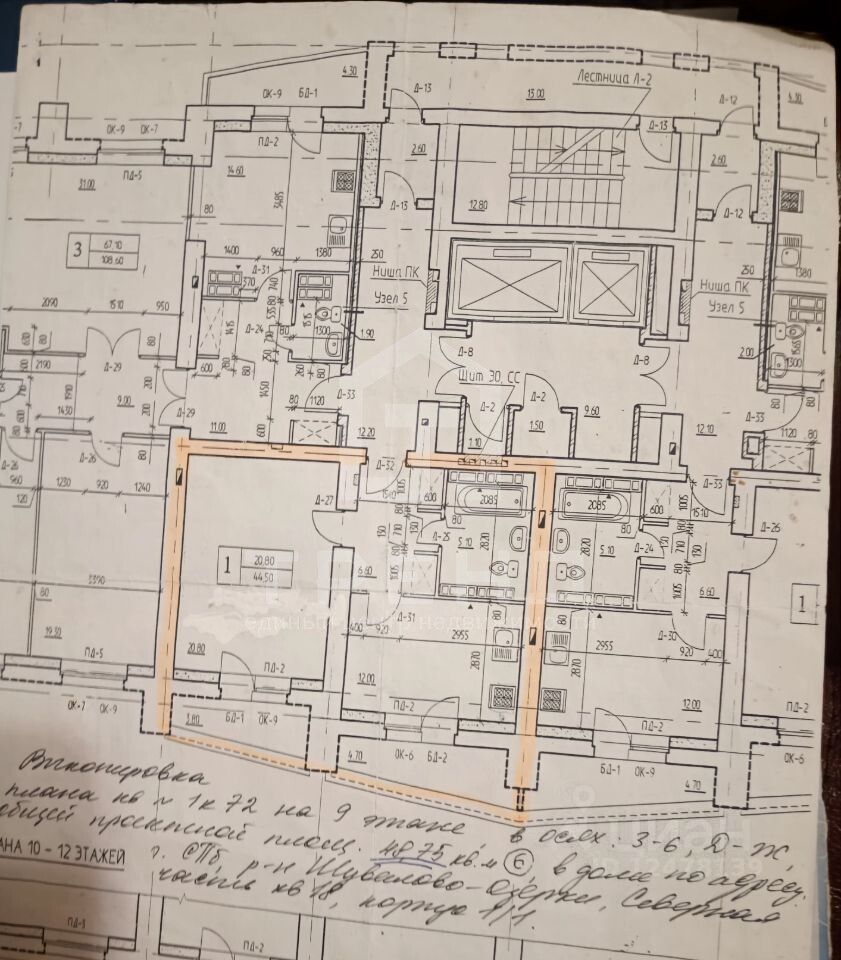 4.30
Лестница Л-2
ОК-9 БД-1
Д-13
13.00
Д-12
4.30
ОК-9 ОК-7
ПД-2
2.60
Д-13
2.60
31.00
ПД-5
14.60
3485
Д-13
12.80
Д-12
80
3
67.10
108.60
1400
960
1380
250
250
1380
Ниша ПК
Узел 5
Ниша ПК
Узел 5
Д-31
370
740
2090
1510
950
535
80
1415
Д-24
1515
1300
1.90
2.00
1565
1300
630
80
600
2190
Д-29
80
200
710
250
280
80
260
80
Д-8
Д-8
Щит ЭО, СС
600
1450
Д-33
1910
9.00
200
1430
Д-29
80
1120
Д-2
Д-2
9.60
Д-33
11.00
600
12.20
1.10
1.50
12.10
1120
Д-26
Д-26
80
Д-32
Д-33
960
120
1230
920
1240
Д-27
1510
1005
600
2085
2085
600
1005
1510
Д-26
130
710
80
80
Д-25
80
80
Д-24
130
130
1
20.80
44.50
5.10
2820
2820
5.10
3390
6.60
1005
1005
6.60
1
80
Д-31
Д-30
400
920
2955
2870
2870
2955
920
400
19.30
20.80
ПД-5
ПД-2
12.00
ПД-2
12.00
ПД-2
ПД-2
ОК-7 ОК-9
3.80
БД-1 ОК-9
ОК-6 БД-2
БД-1 ОК-9
ОК-6
4.70
4.70
единый недвижимости
циан
Выкопировка
плана кв № 1к 72 на 9 этаже в осях. 3-6, Д-Ж,
общей проектной площ. 48,75 кв.м (6), в доме по адресу:
г. СПб, р-н Шувалово-Озерки, Северная
часть кв 18, корпус 1/1.
АНА 10 – 12 ЭТАЖЕЙ
ПД-3
ПД-2